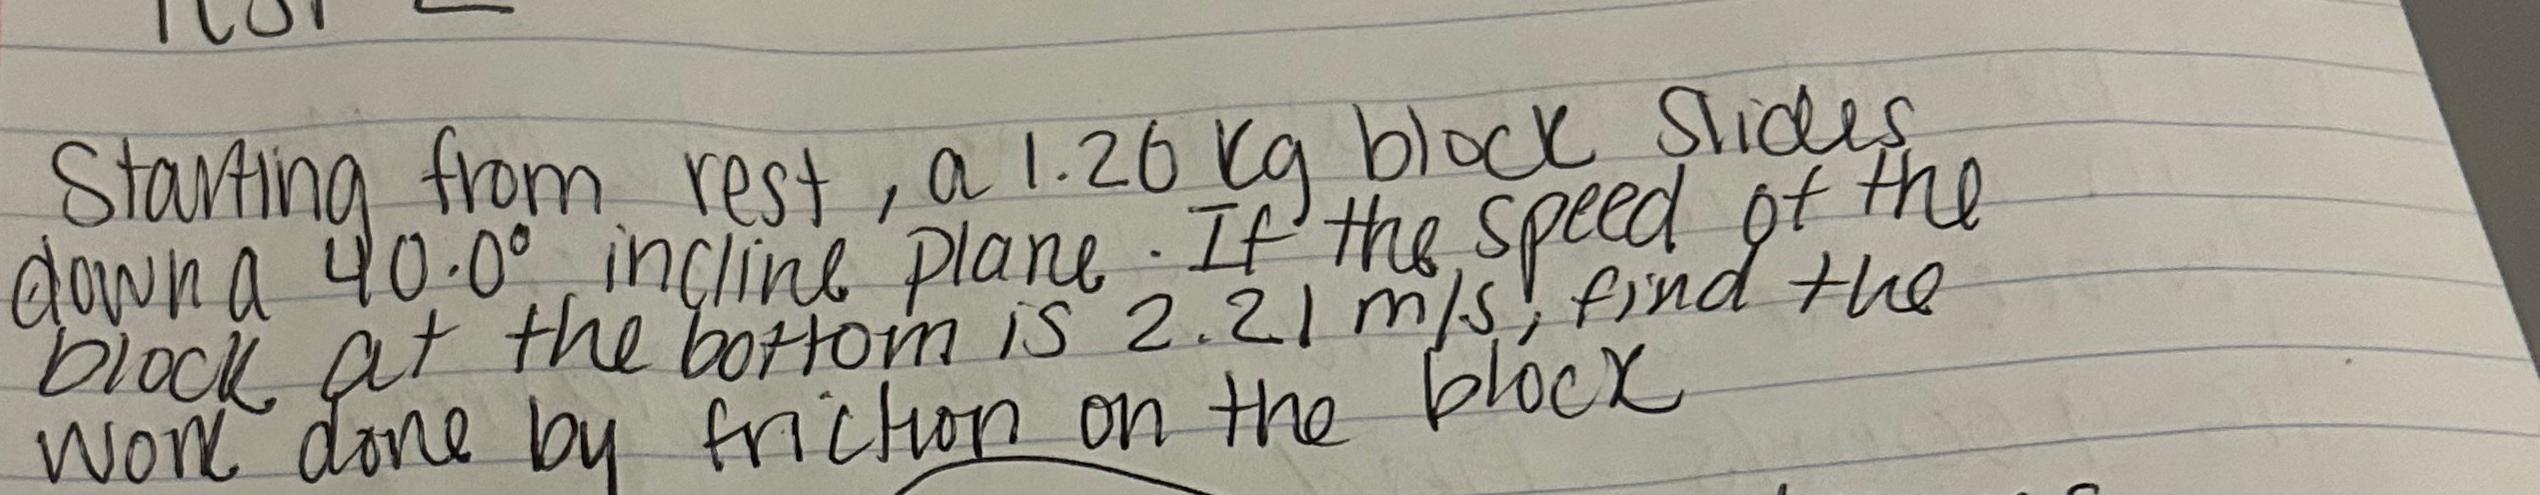 Starting from rest, a 1.26 kg block slides
down a 40.0° incline plane. If the speed of the
block at the bottom is 2.21 m/s, find the
work done by friction on the block